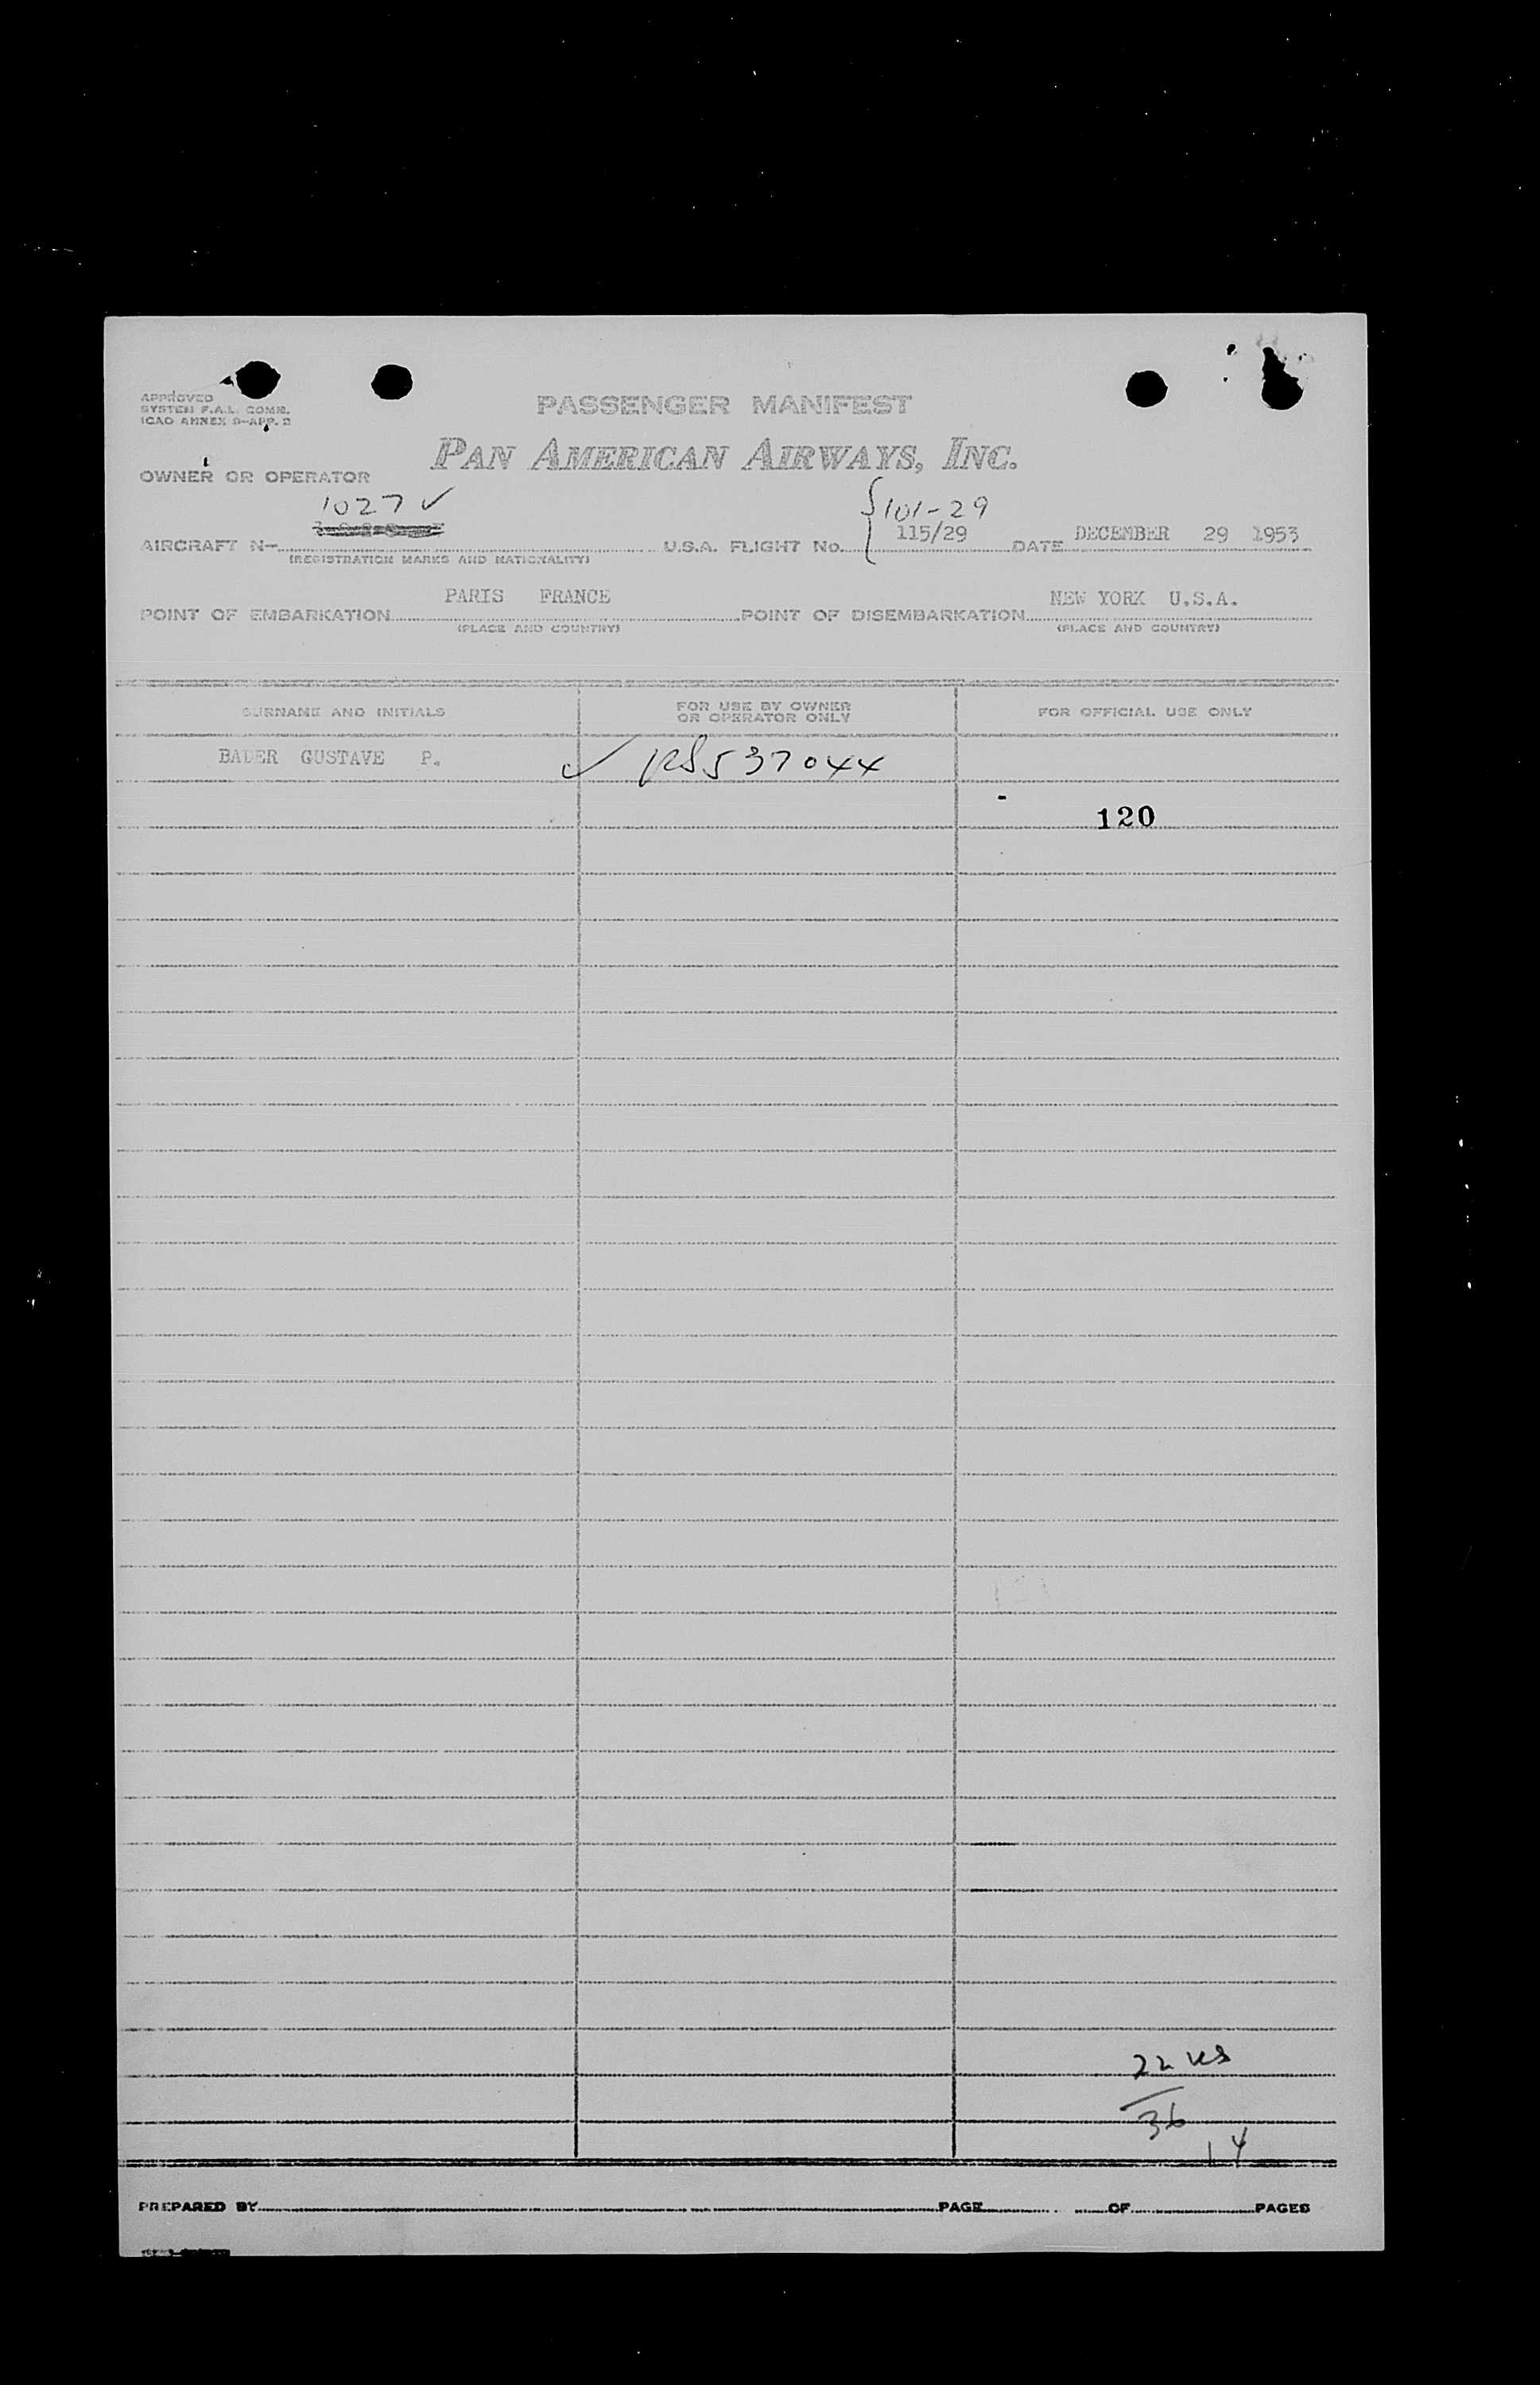 APPROVED
SYSTEM F.A.L. COMM.
ICAO ANNEX 9-APP. D
PASSENGER MANIFEST
PAN AMERICAN AIRWAYS, INC.
OWNER OR OPERATOR
1027 ✓
{101-29
AIRCRAFT N- U.S.A. FLIGHT No. 115/29 DATE DECEMBER 29 1953
(REGISTRATION MARKS AND NATIONALITY)
POINT OF EMBARKATION PARIS FRANCE POINT OF DISEMBARKATION NEW YORK U.S.A.
(PLACE AND COUNTRY) (PLACE AND COUNTRY)
SURNAME AND INITIALS FOR USE BY OWNER OR OPERATOR ONLY FOR OFFICIAL USE ONLY
BADER GUSTAVE P. ✓ 537044
120
22 us
36
14
PREPARED BY PAGE OF PAGES